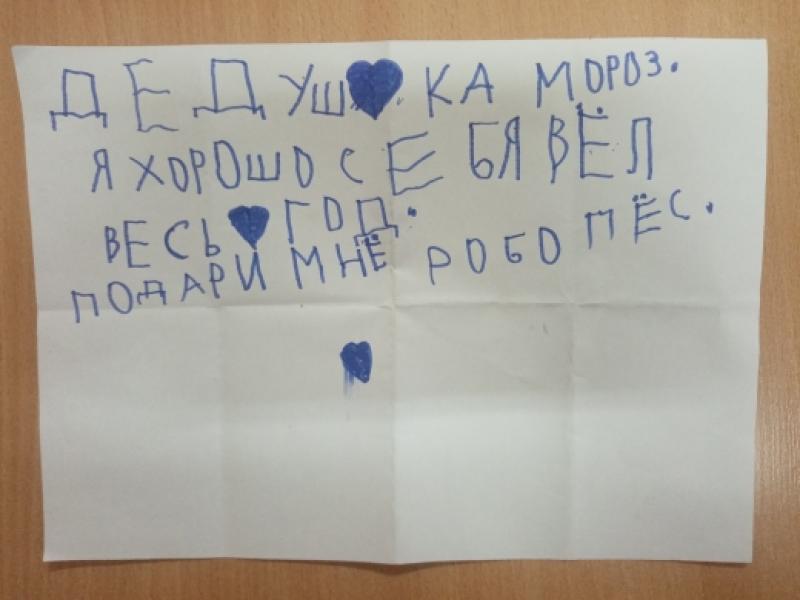 ДЕДУШКА МОРОЗ.
Я ХОРОШО СЕБЯ ВЁЛ
ВЕСЬ ГОД.
ПОДАРИ МНЁ РОБО ПЁС.